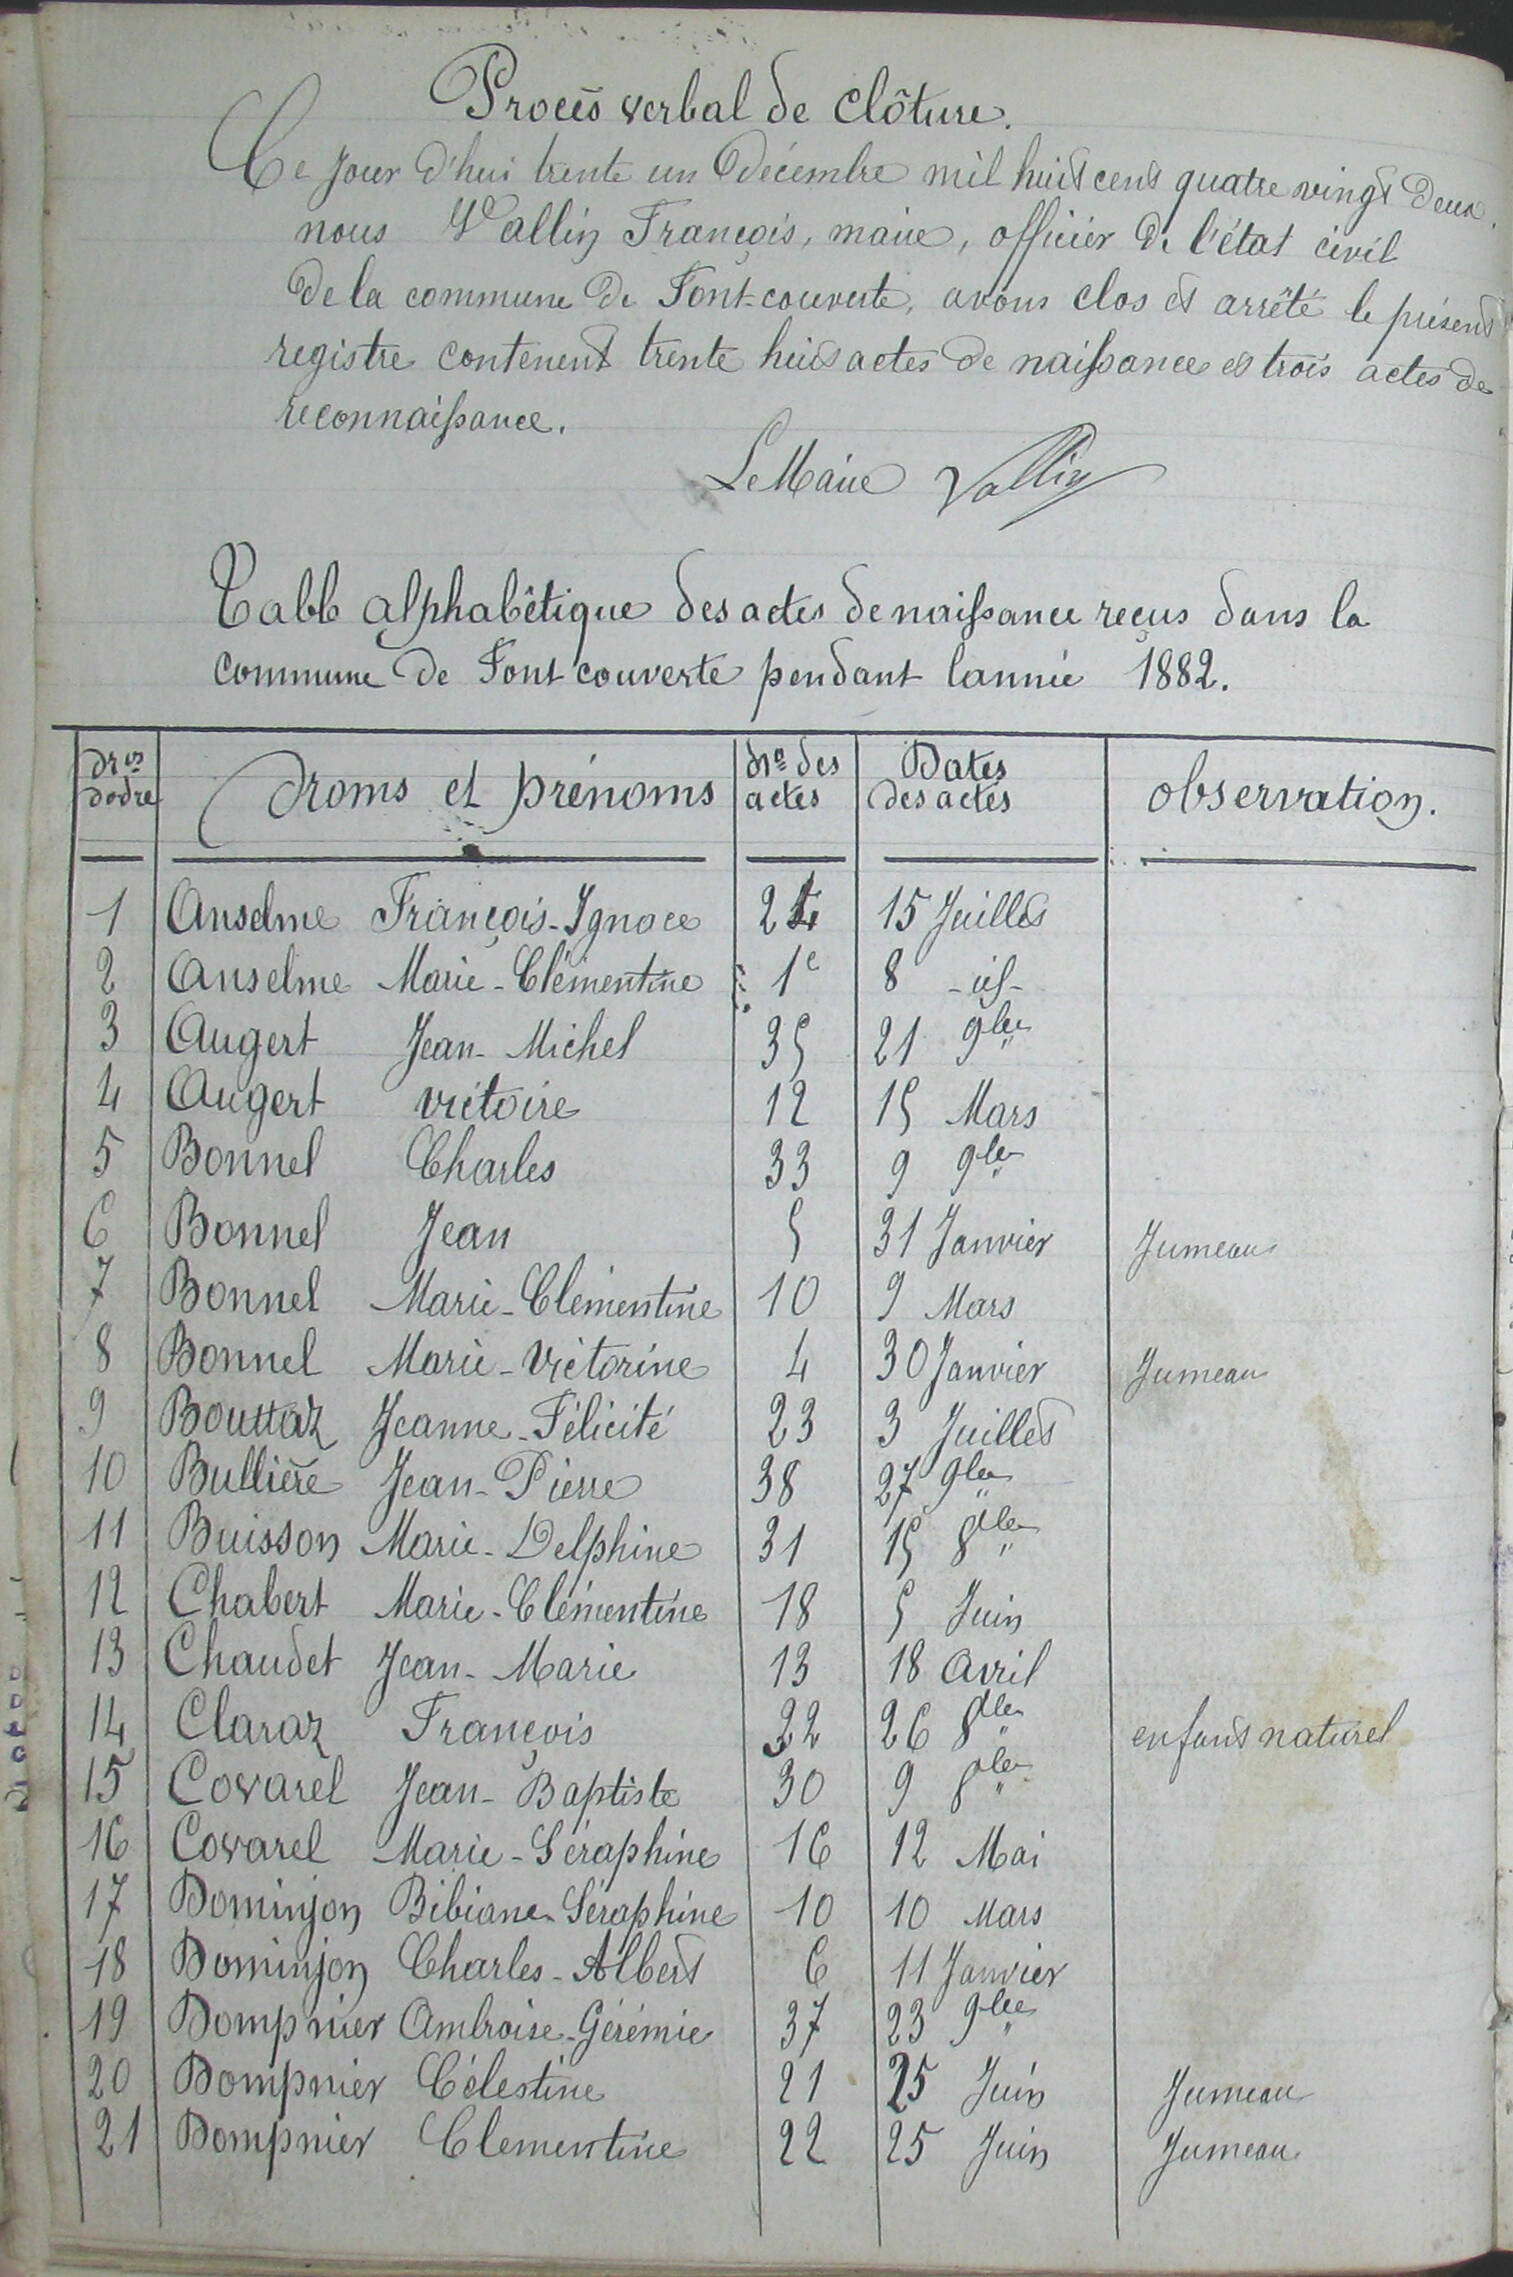 Procès verbal de clôture.
Ce jour d'hui trente un Décembre mil huit cent quatre vingt Deux.
nous Vallin François, maire, officier de l'état civil
de la commune de Font-couverte, avons clos et arrêté le présent
registre contenent trente huit actes de naissance et trois actes de
reconnaissance.
Le Maire Vallin
Table alphabêtique des actes de naissance reçus dans la
commune de Font couverte pendant lannée 1882.
Nos dodre Noms et prénoms No des actes Dates des actes observation.
1 Anselme François-Ignace 24 15 Juillet
2 Anselme Marie-Clémentine 1e 8
3 Augert Jean-Michel 35 21 9bre
4 Augert victoire 12 15 Mars
5 Bonnel Charles 33 9 9bre
6 Bonnel Jean 5 31 Janvier Jumeau
7 Bonnel Marie-Clémentine 10 9 Mars
8 Bonnel Marie-Victorine 4 30 Janvier Jumeau
9 Bouttaz Jeanne-Félicité 23 3 Juillet
10 Bullière Jean-Pierre 38 27 9bre
11 Buisson Marie-Delphine 31 15 8bre
12 Chabert Marie-Clémentine 18 5 Juin
13 Chaudet Jean-Marie 13 18 Avril
14 Claraz François 32 26 8bre enfant naturel
15 Covarel Jean-Baptiste 30 9 8bre
16 Covarel Marie-Séraphine 16 12 Mai
17 Dominjon Bibiane-Séraphine 10 10 Mars
18 Dominjon Charles-Albert 6 11 Janvier
19 Dompnier Ambroise-Gérémie 37 23 9bre
20 Dompnier Célestine 21 25 Juin Jumeau
21 Dompnier Clementine 22 25 Juin Jumeau